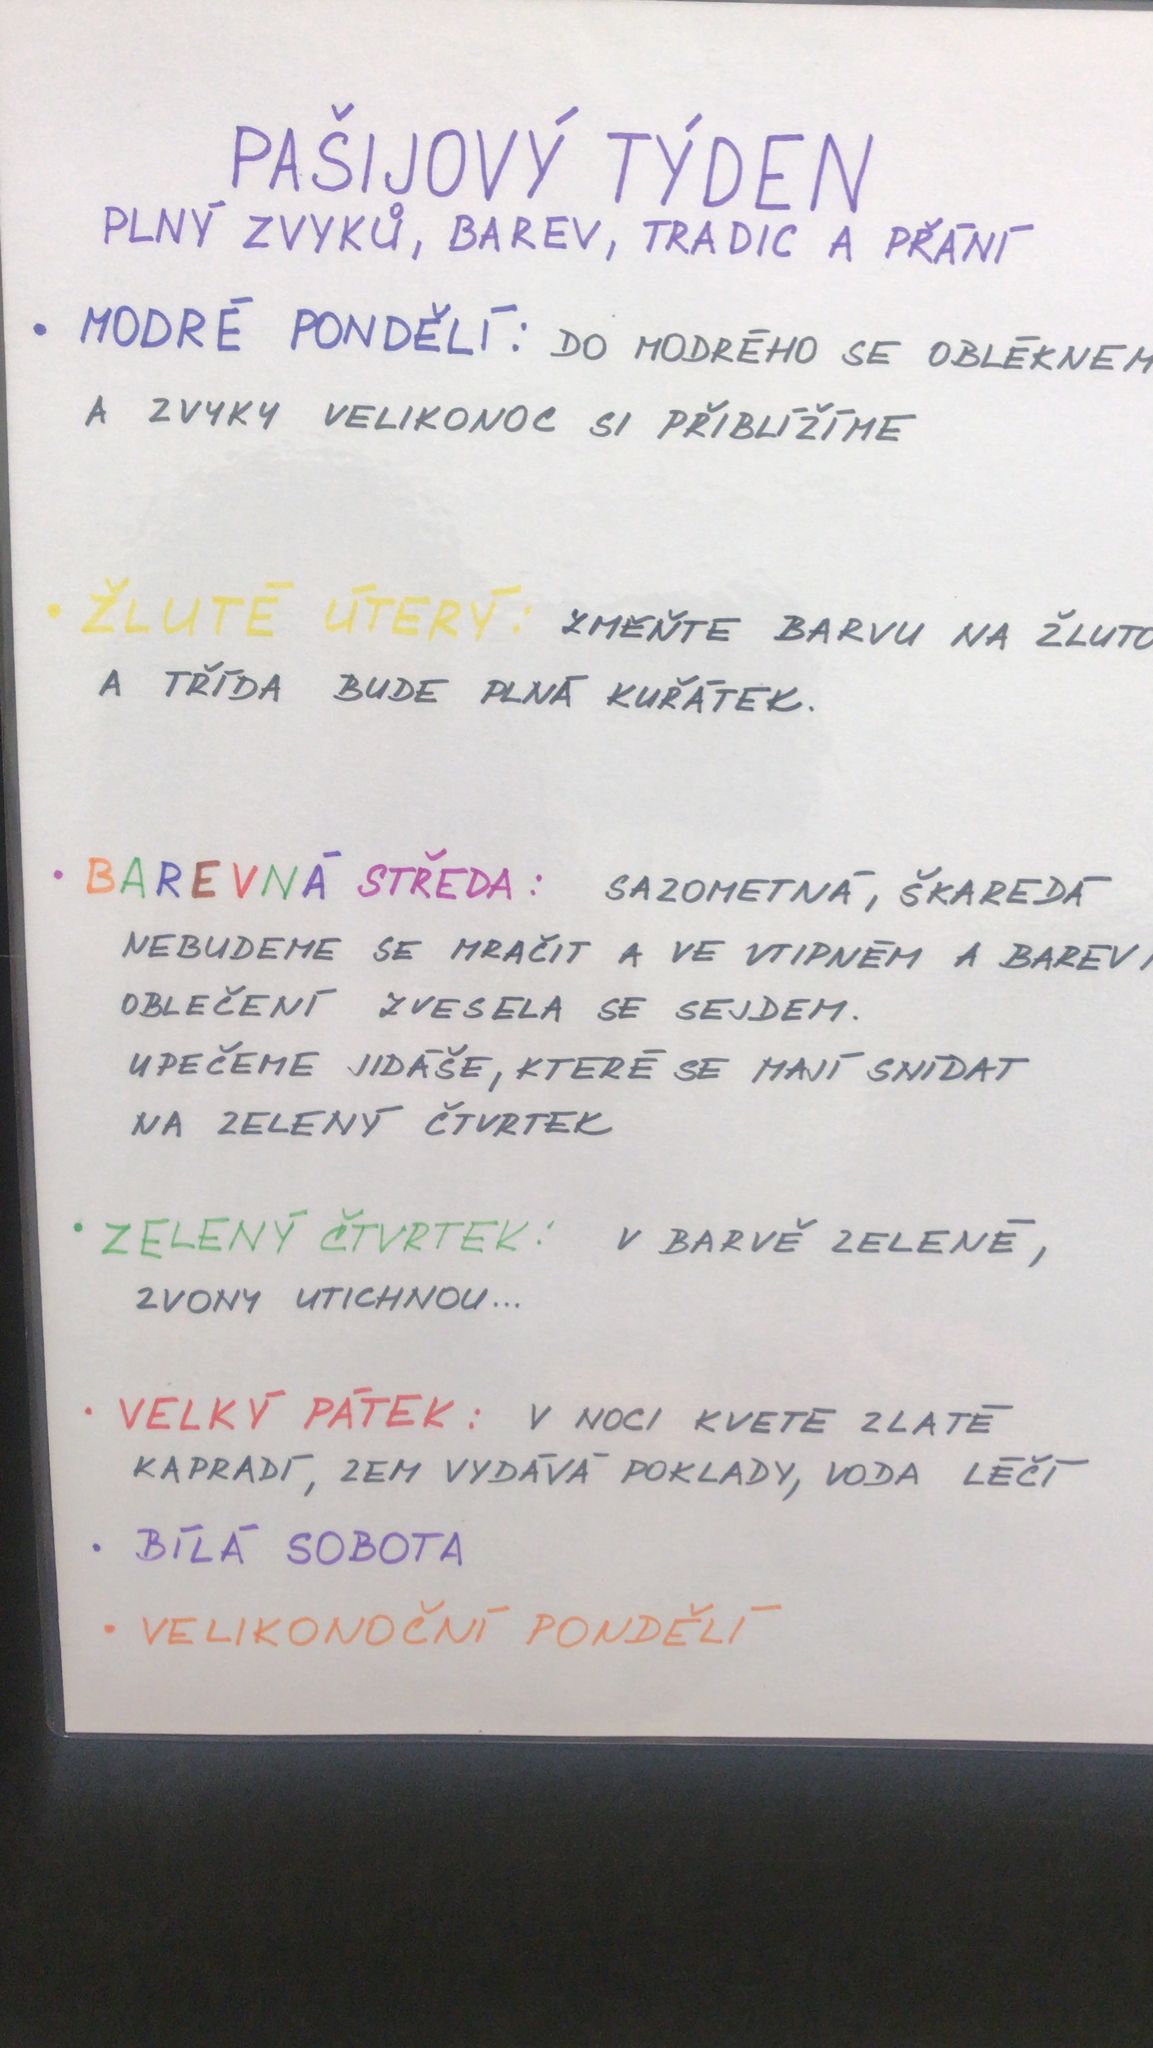 PAŠIJOVÝ TÝDEN
PLNÝ ZVYKŮ, BAREV, TRADIC A PŘÁNÍ
• MODRÉ PONDĚLÍ: DO MODRÉHO SE OBLÉKNEM
A ZVYKY VELIKONOC SI PŘIBLÍŽÍME
• ŽLUTÉ ÚTERÝ: ZMĚŇTE BARVU NA ŽLUTO
A TŘÍDA BUDE PLNÁ KUŘÁTEK.
• BAREVNÁ STŘEDA: SAZOMETNÁ, ŠKAREDÁ
NEBUDEME SE MRAČIT A VE VTIPNÉM A BAREV
OBLEČENÍ ZVESELA SE SEJDEM.
UPEČEME JIDÁŠE, KTERÉ SE MAJÍ SNÍDAT
NA ZELENÝ ČTVRTEK
• ZELENÝ ČTVRTEK: V BARVĚ ZELENÉ,
ZVONY UTICHNOU...
• VELKÝ PÁTEK: V NOCI KVETE ZLATÉ
KAPRADÍ, ZEM VYDÁVÁ POKLADY, VODA LÉČÍ
• BÍLÁ SOBOTA
• VELIKONOČNÍ PONDĚLÍ